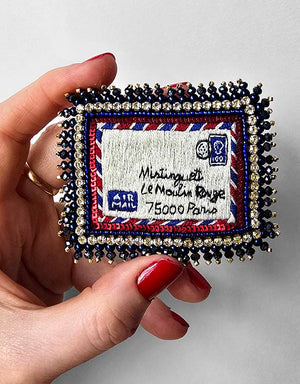 Mistinguett
Le Moulin Rouge
75000 Paris
AIR
MAIL
100